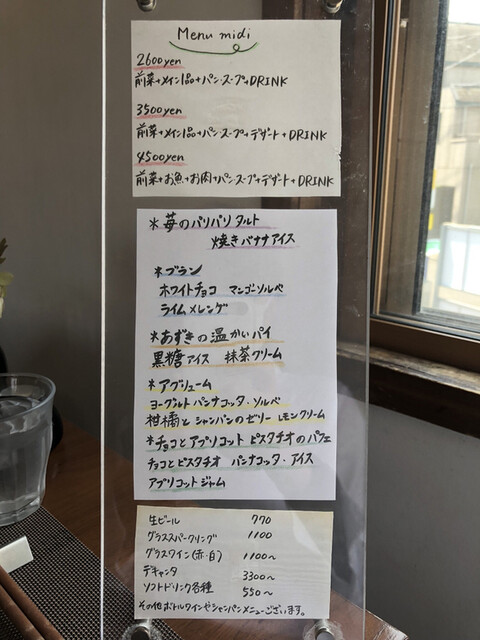 Menu midi
2600yen
前菜+メイン1品+パン・スープ+DRINK
3500yen
前菜+メイン1品+パン・スープ+デザート+DRINK
4500yen
前菜+お魚+お肉+パン・スープ+デザート+DRINK
*苺のパリパリタルト
焼きバナナアイス
*ブラン
ホワイトチョコ マンゴーソルベ
ライムメレンゲ
*あずきの温かいパイ
黒糖アイス 抹茶クリーム
*アグリューム
ヨーグルトパンナコッタ・ソルベ
柑橘とシャンパンのゼリー レモンクリーム
*チョコとアプリコット ピスタチオのパフェ
チョコとピスタチオ パンナコッタ・アイス
アプリコットジャム
生ビール 770
グラススパークリング 1100
グラスワイン(赤・白) 1100~
デキャンタ 3300~
ソフトドリンク各種 550~
その他ボトルワインやシャンパンメニューございます。